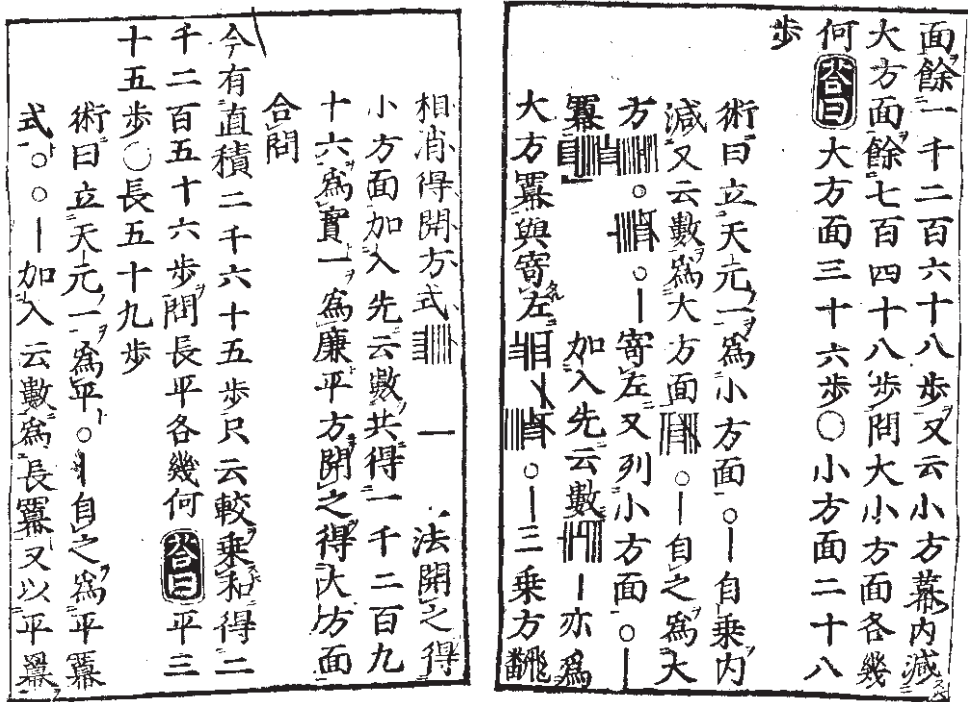 面餘一千二百六十八歩又云小方幕内減
大方面餘七百四十八歩問大小方面各幾
何荅曰大方面三十六歩〇小方面二十八
歩
術曰立天元一爲小方面〇〡自乗内
減又云數爲大方面〇〡自之爲大
方〇〇〡寄左又列小方面〇〡
羃加入先云數〡亦爲
大方羃與寄左〇〡三乗方飜
相消得開方式一法開之得
小方面加入先云數共得一千二百九
十六爲實一爲廉平方開之得大方面
合問
今有直積二千六十五歩只云較乗和得二
千二百五十六歩問長平各幾何荅曰平三
十五歩〇長五十九歩
術曰立天元一爲平〇〡自之爲平羃
式〇〇〡加入云數爲長羃又以平羃